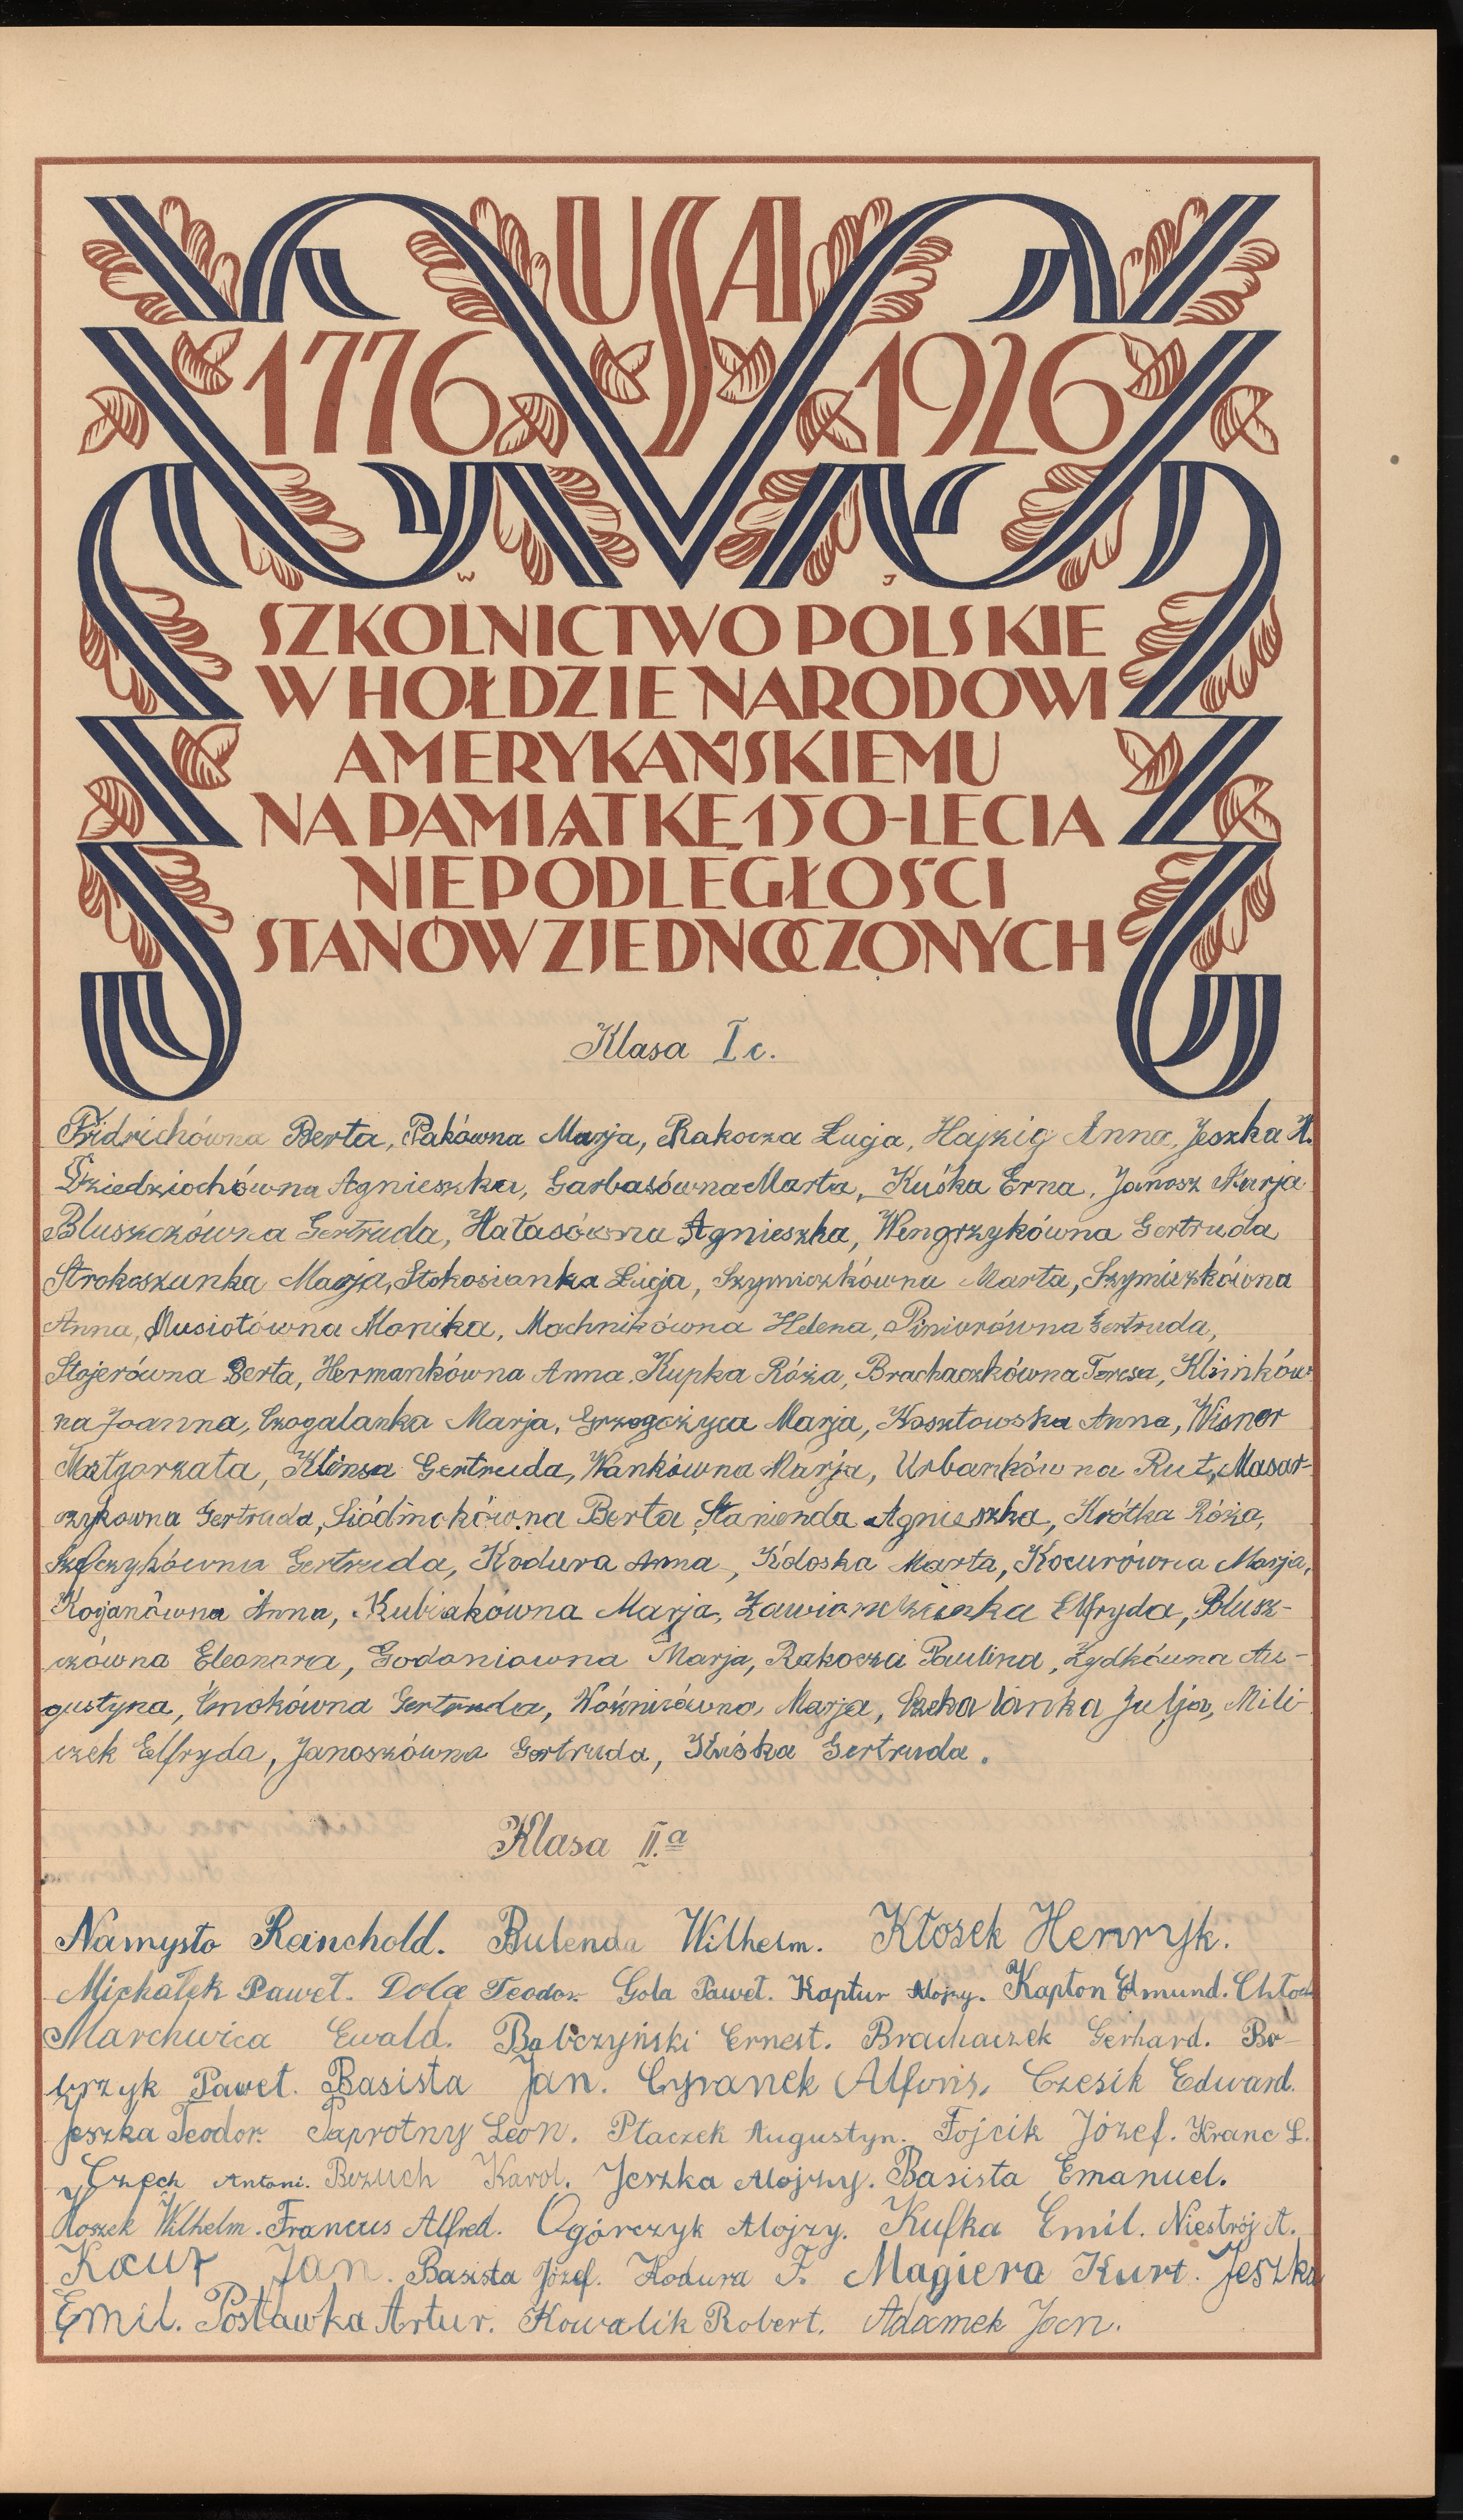 USA
1776 1926
W J
SZKOLNICTWO POLSKIE
W HOŁDZIE NARODOWI
AMERYKAŃSKIEMU
NA PAMIĄTKĘ 150-LECIA
NIEPODLEGŁOŚCI
STANÓW ZJEDNOCZONYCH
Klasa I c.
Fridrichówna Berta, Pakówna Marja, Rakocza Łucja, Hajzig Anna, Jeszka H.
Dziedziochówna Agnieszka, Garbasówna Marta, Kuśka Erna, Janosz Marja
Bluszczówna Gertruda, Hałasówna Agnieszka, Wengrzykówna Gertruda
Strokoszanka Marja, Stokosianka Łucja, Szymiczkówna Marta, Szymiczkówna
Anna, Musiołówna Monika, Machnikówna Helena, Piniorówna Gertruda,
Stajerówna Berta, Hermankówna Anna, Kupka Róża, Brachaczkówna Teresa, Klinków
na Joanna, Czogalanka Marja, Grzegożyca Marja, Kosztowska Anna, Wisner
Małgorzata, Klimsa Gertruda, Wankówna Marja, Urbankówna Rut, Masar-
czykowna Gertruda, Siódmokówna Berta, Stanienda Agnieszka, Krótka Róża,
Gertruda, Kodura Anna, Kołoska Marta, Kocurówna Marja,
Kojanówna Anna, Kubiakówna Marja, Elfryda, Blusz-
czówna Eleonora, Godoniowna Marja, Rakocza Paulina, Zydkówna Au-
gustyna, Ćmokówna Gertruda, Woźnicówna Marja, Czekalanka Julja, Mili
czek Elfryda, Janoszówna Gertruda, Kuśka Gertruda.
Klasa II.a
Namysło Reinchold. Bulenda Wilhelm. Kłosek Henryk.
Michałek Paweł. Dola Teodor. Gola Paweł. Kaptur Alojzy. Kapton Edmund. Chłod
Marchwica Ewald. Babczyński Ernest. Brachaczek Gerhard. Bo-
brzyk Paweł. Basista Jan. Cyranek Alfons. Czesik Edward.
Jeszka Teodor. Paprotny Leon. Ptaczek Augustyn. Fojcik Józef. Kranc L.
Czech Antoni. Bezuch Karol. Jeszka Alojzy. Basista Emanuel.
Kloszek Wilhelm. Francus Alfred. Ogórczyk Alojzy. Kufka Emil. Niestrój A.
Kocur Jan. Basista Józef. Kodura F. Magiera Kurt. Jeszka
Emil. Postawka Artur. Kowalik Robert. Adamek Jan.